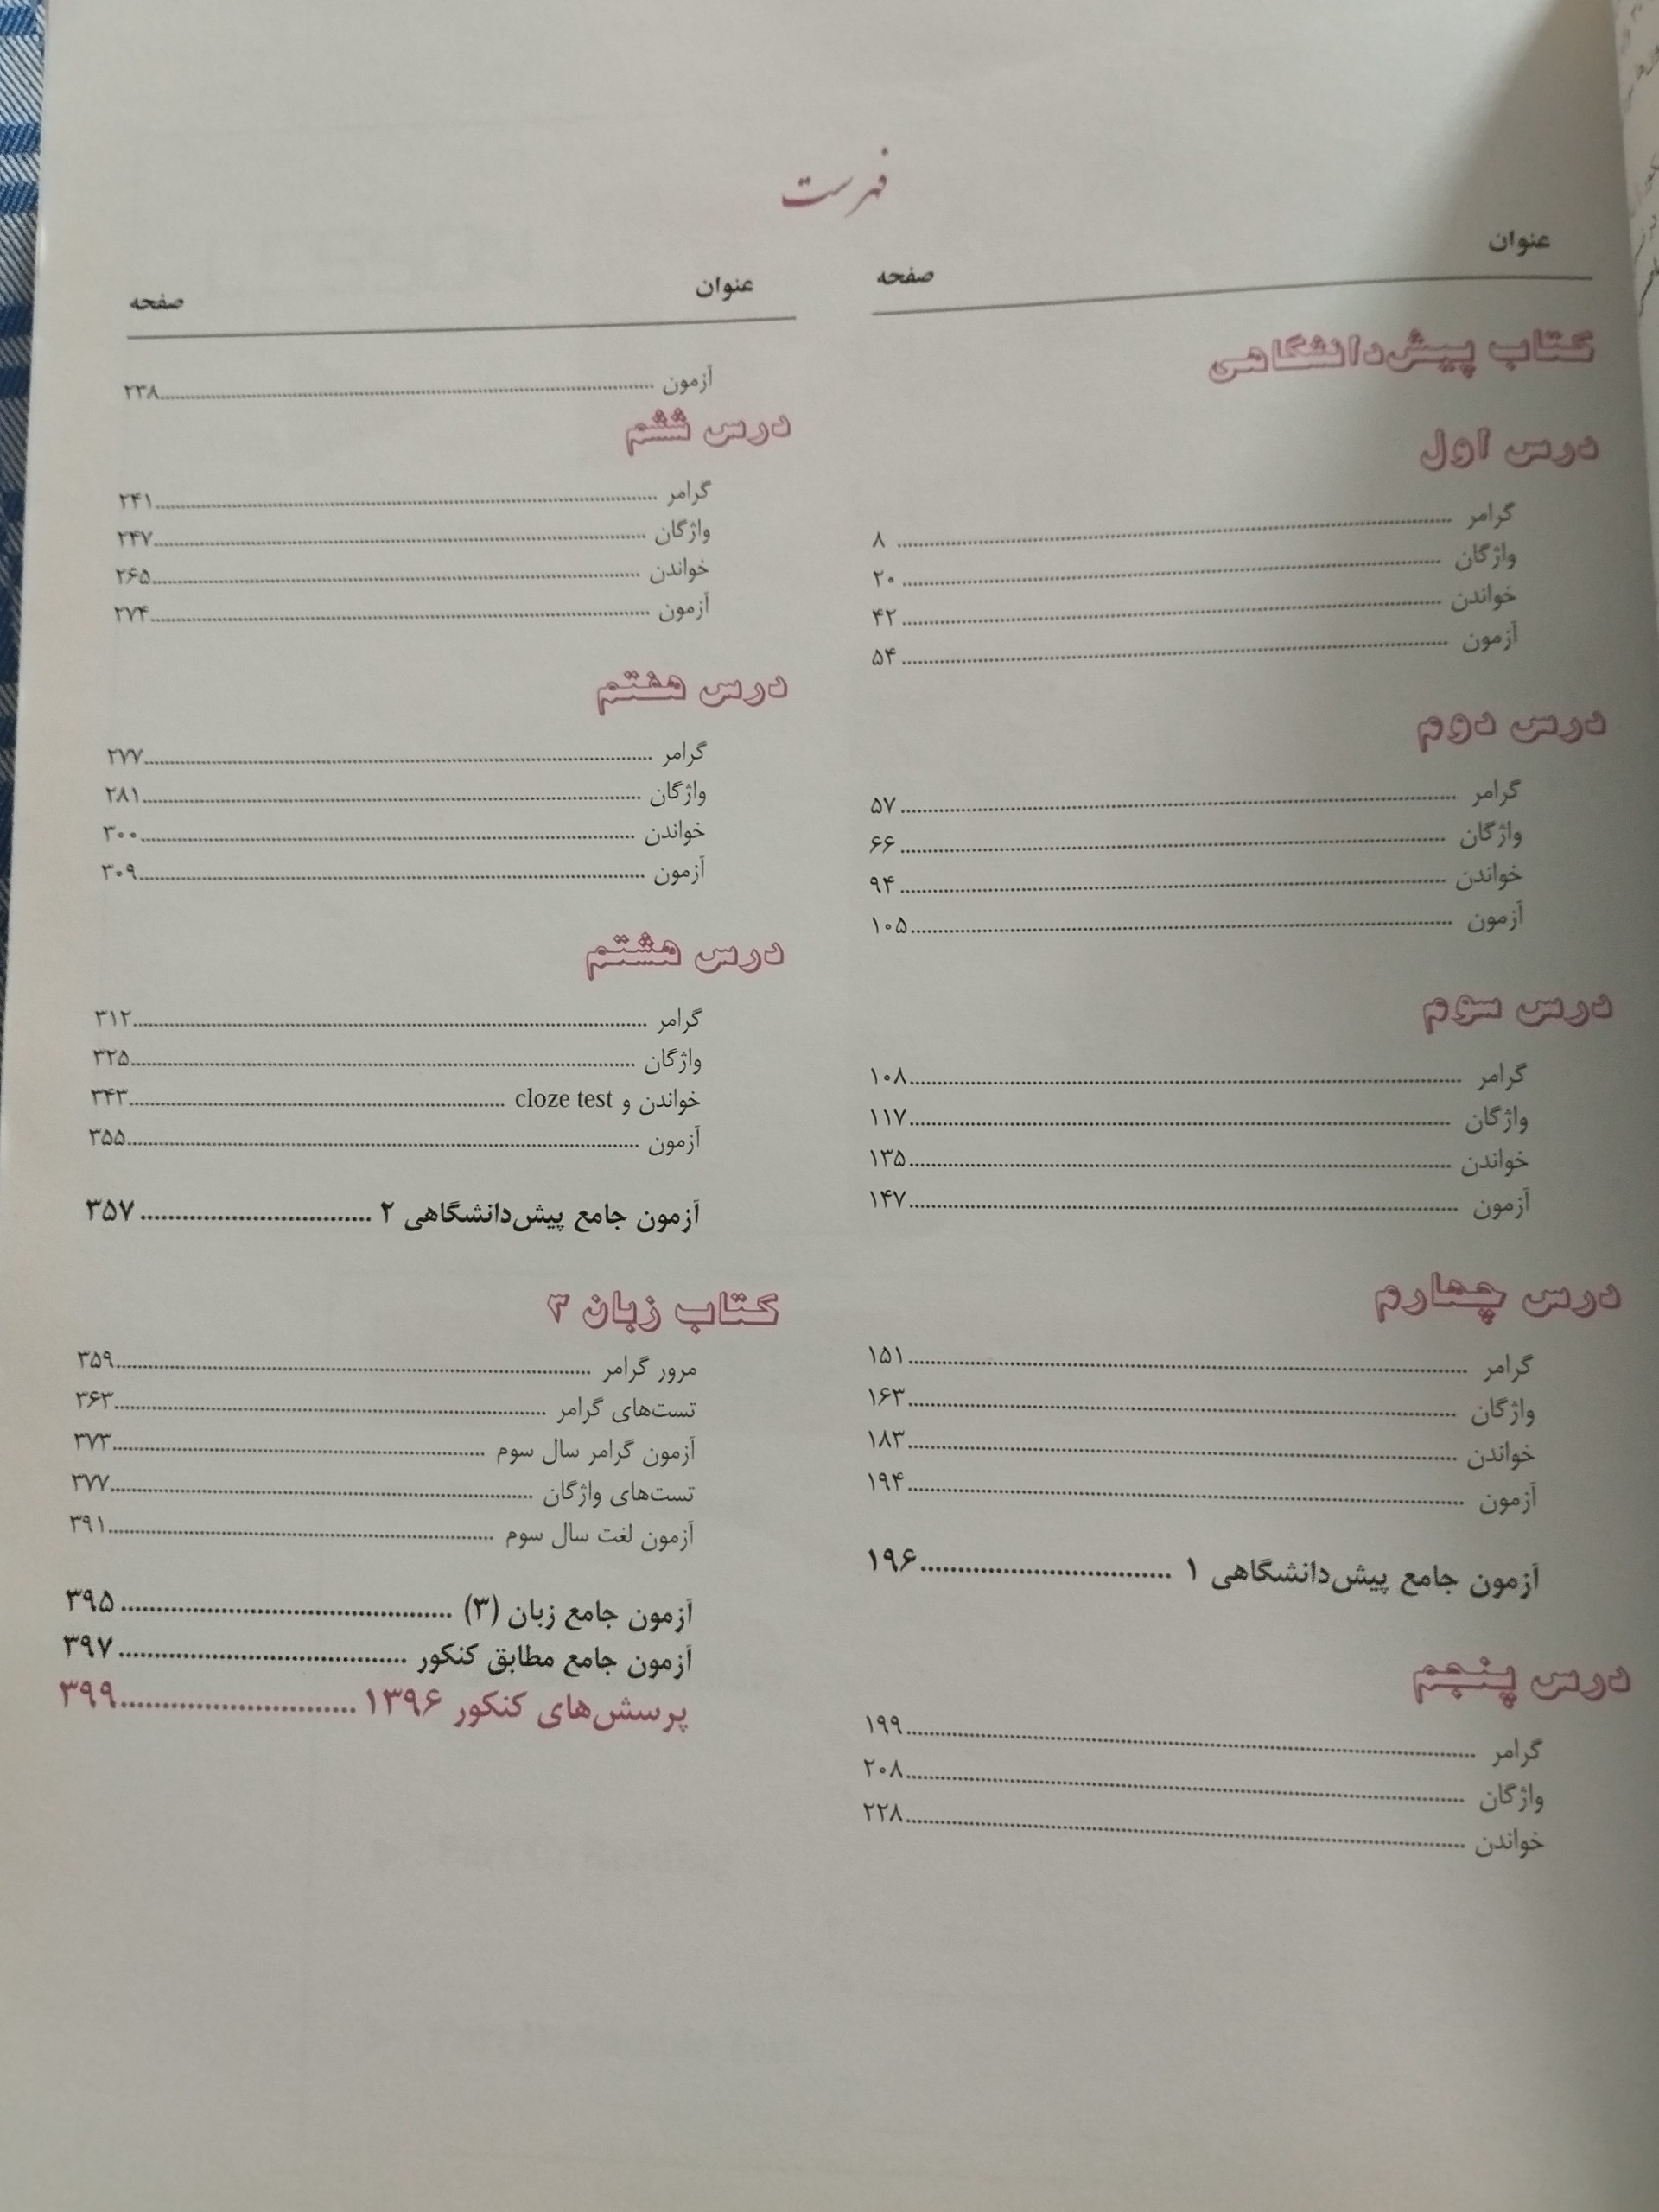 فهرست
عنوان صفحه
کتاب پیش‌دانشگاهی
درس اول
گرامر ........ ۸
واژگان ........ ۲۰
خواندن ........ ۴۲
آزمون ........ ۵۴
درس دوم
گرامر ........ ۵۷
واژگان ........ ۶۶
خواندن ........ ۹۴
آزمون ........ ۱۰۵
درس سوم
گرامر ........ ۱۰۸
واژگان ........ ۱۱۷
خواندن ........ ۱۳۵
آزمون ........ ۱۴۷
درس چهارم
گرامر ........ ۱۵۱
واژگان ........ ۱۶۳
خواندن ........ ۱۸۳
آزمون ........ ۱۹۴
آزمون جامع پیش‌دانشگاهی ۱ ........ ۱۹۶
درس پنجم
گرامر ........ ۱۹۹
واژگان ........ ۲۰۸
خواندن ........ ۲۲۸
عنوان صفحه
آزمون ........ ۲۳۸
درس ششم
گرامر ........ ۲۴۱
واژگان ........ ۲۴۷
خواندن ........ ۲۶۵
آزمون ........ ۲۷۴
درس هفتم
گرامر ........ ۲۷۷
واژگان ........ ۲۸۱
خواندن ........ ۳۰۰
آزمون ........ ۳۰۹
درس هشتم
گرامر ........ ۳۱۲
واژگان ........ ۳۲۵
خواندن و cloze test ........ ۳۴۳
آزمون ........ ۳۵۵
آزمون جامع پیش‌دانشگاهی ۲ ........ ۳۵۷
کتاب زبان ۳
مرور گرامر ........ ۳۵۹
تست‌های گرامر ........ ۳۶۳
آزمون گرامر سال سوم ........ ۳۷۳
تست‌های واژگان ........ ۳۷۷
آزمون لغت سال سوم ........ ۳۹۱
آزمون جامع زبان (۳) ........ ۳۹۵
آزمون جامع مطابق کنکور ........ ۳۹۷
پرسش‌های کنکور ۱۳۹۶ ........ ۳۹۹